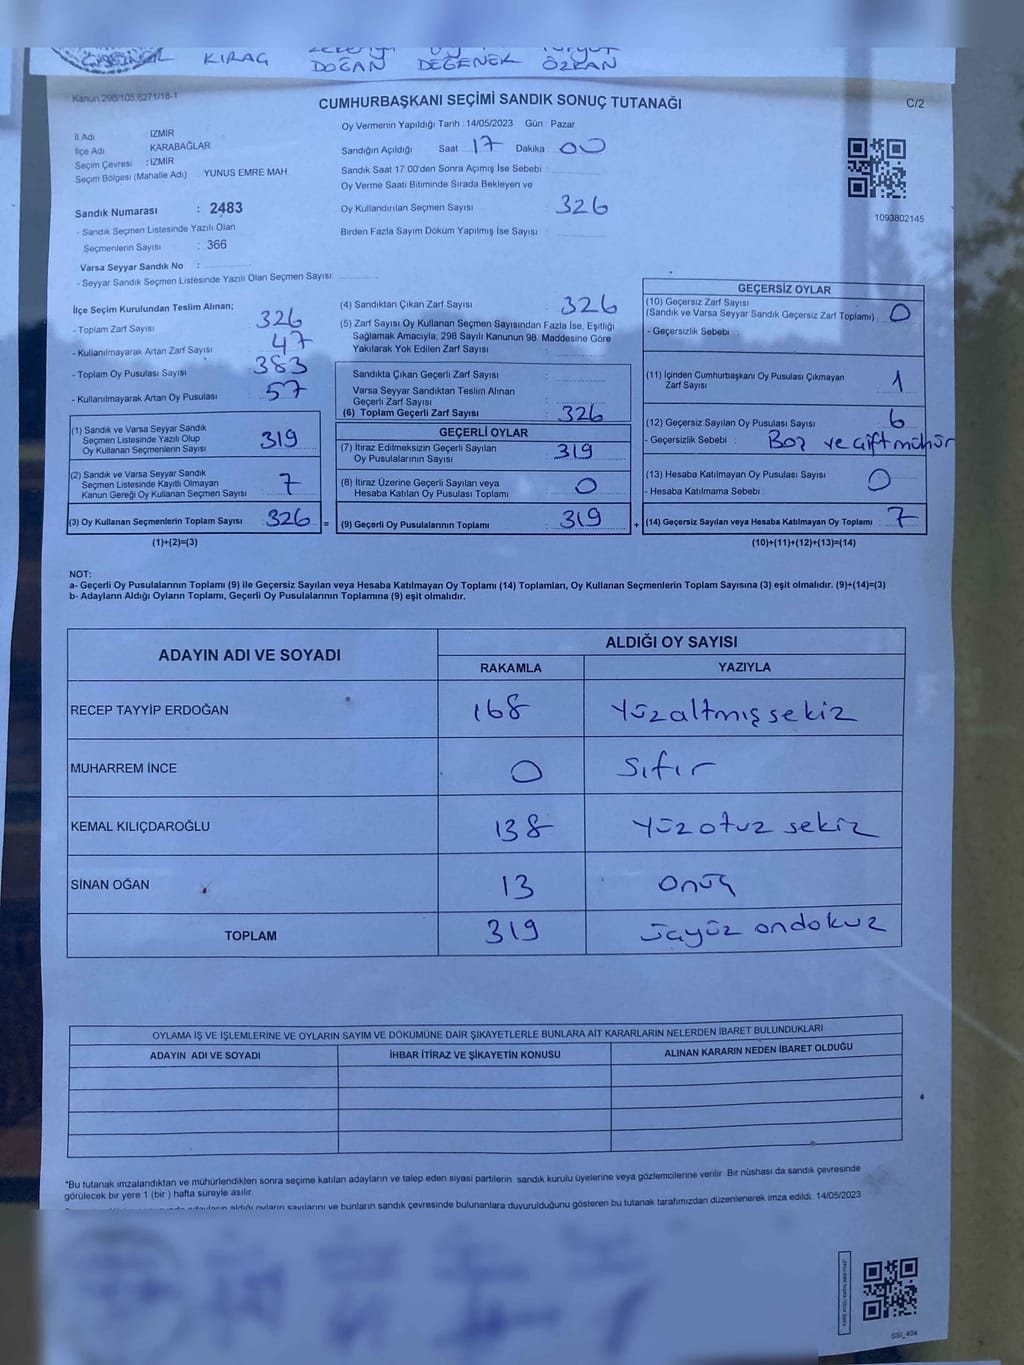 KIRAG DOĞAN DEĞENEK ÖZKAN
Kanun 298/105,6271/18-1
CUMHURBAŞKANI SEÇİMİ SANDIK SONUÇ TUTANAĞI
C/2
İl Adı : İZMİR
İlçe Adı : KARABAĞLAR
Seçim Çevresi : İZMİR
Seçim Bölgesi (Mahalle Adı) YUNUS EMRE MAH
Oy Vermenin Yapıldığı Tarih : 14/05/2023 Gün : Pazar
Sandığın Açıldığı Saat 17 Dakika : 00
Sandık Saat 17:00'den Sonra Açımış İse Sebebi :
Oy Verme Saati Bitiminde Sırada Bekleyen ve
Oy Kullandırılan Seçmen Sayısı : 326
Birden Fazla Sayım Döküm Yapılmış İse Sayısı :
1093802145
Sandık Numarası : 2483
- Sandık Seçmen Listesinde Yazılı Olan
Seçmenlerin Sayısı : 366
Varsa Seyyar Sandık No :
- Seyyar Sandık Seçmen Listesinde Yazılı Olan Seçmen Sayısı:
İlçe Seçim Kurulundan Teslim Alınan;
- Toplam Zarf Sayısı : 326
- Kullanılmayarak Artan Zarf Sayısı : 47
- Toplam Oy Pusulası Sayısı : 383
- Kullanılmayarak Artan Oy Pusulası : 57
(1) Sandık ve Varsa Seyyar Sandık
Seçmen Listesinde Yazılı Olup
Oy Kullanan Seçmenlerin Sayısı : 319
(2) Sandık ve Varsa Seyyar Sandık
Seçmen Listesinde Kayıtlı Olmayan
Kanun Gereği Oy Kullanan Seçmen Sayısı : 7
(3) Oy Kullanan Seçmenlerin Toplam Sayısı : 326 =
(1)+(2)=(3)
(4) Sandıktan Çıkan Zarf Sayısı : 326
(5) Zarf Sayısı Oy Kullanan Seçmen Sayısından Fazla İse, Eşitliği
Sağlamak Amacıyla, 298 Sayılı Kanunun 98. Maddesine Göre
Yakılarak Yok Edilen Zarf Sayısı :
Sandıkta Çıkan Geçerli Zarf Sayısı :
Varsa Seyyar Sandıktan Teslim Alınan
Geçerli Zarf Sayısı :
(6) Toplam Geçerli Zarf Sayısı : 326
GEÇERLİ OYLAR
(7) İtiraz Edilmeksizin Geçerli Sayılan
Oy Pusulalarının Sayısı : 319
(8) İtiraz Üzerine Geçerli Sayılan veya
Hesaba Katılan Oy Pusulası Toplamı : 0
(9) Geçerli Oy Pusulalarının Toplamı : 319 +
GEÇERSİZ OYLAR
(10) Geçersiz Zarf Sayısı
(Sandık ve Varsa Seyyar Sandık Geçersiz Zarf Toplamı) : 0
- Geçersizlik Sebebi :
(11) İçinden Cumhurbaşkanı Oy Pusulası Çıkmayan
Zarf Sayısı 1
(12) Geçersiz Sayılan Oy Pusulası Sayısı : 6
- Geçersizlik Sebebi : Boş ve çift mühür
(13) Hesaba Katılmayan Oy Pusulası Sayısı : 0
- Hesaba Katılmama Sebebi :
(14) Geçersiz Sayılan veya Hesaba Katılmayan Oy Toplamı : 7
(10)+(11)+(12)+(13)=(14)
NOT:
a- Geçerli Oy Pusulalarının Toplamı (9) ile Geçersiz Sayılan veya Hesaba Katılmayan Oy Toplamı (14) Toplamları, Oy Kullanan Seçmenlerin Toplam Sayısına (3) eşit olmalıdır. (9)+(14)=(3)
b- Adayların Aldığı Oyların Toplamı, Geçerli Oy Pusulalarının Toplamına (9) eşit olmalıdır.
ADAYIN ADI VE SOYADI
ALDIĞI OY SAYISI
RAKAMLA YAZIYLA
RECEP TAYYİP ERDOĞAN 168 Yüzaltmışsekiz
MUHARREM İNCE 0 Sıfır
KEMAL KILIÇDAROĞLU 138 Yüzotuz sekiz
SİNAN OĞAN 13 onüç
TOPLAM 319 üçyüz ondokuz
OYLAMA İŞ VE İŞLEMLERİNE VE OYLARIN SAYIM VE DÖKÜMÜNE DAİR ŞİKAYETLERLE BUNLARA AİT KARARLARIN NELERDEN İBARET BULUNDUKLARI
ADAYIN ADI VE SOYADI İHBAR İTİRAZ VE ŞİKAYETİN KONUSU ALINAN KARARIN NEDEN İBARET OLDUĞU
*Bu tutanak imzalandıktan ve mühürlendikten sonra seçime katılan adayların ve talep eden siyasi partilerin sandık kurulu üyelerine veya gözlemcilerine verilir. Bir nüshası da sandık çevresinde
görülecek bir yere 1 (bir ) hafta süreyle asılır.
adayların aldığı oyların sayılarını ve bunların sandık çevresinde bulunanlara duyurulduğunu gösteren bu tutanak tarafımızdan düzenlenerek imza edildi. 14/05/2023
SSI_404